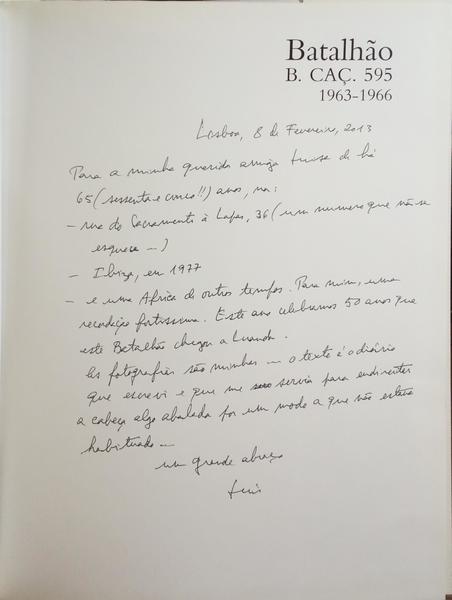 Batalhão
B. CAÇ. 595
1963-1966
Lisboa, 8 de Fevereiro, 2013
Para a minha querida amiga Luisa de há
65 (sessenta e cinco!!) anos, na:
- rua do Sacramento à Lapa, 36 (um numero que não se
esquece ...)
- Ibiza, em 1977
- e uma Africa de outros tempos. Para mim, uma
recordação fortissima. Este ano celebramos 50 anos que
este Batalhão chegou a Luanda.
As fotografias são minhas ... o texto é o diário
que escrevi e que me servia para endireitar
a cabeça algo abalada por um modo a que não estava
habituado ...
um grande abraço
Luis